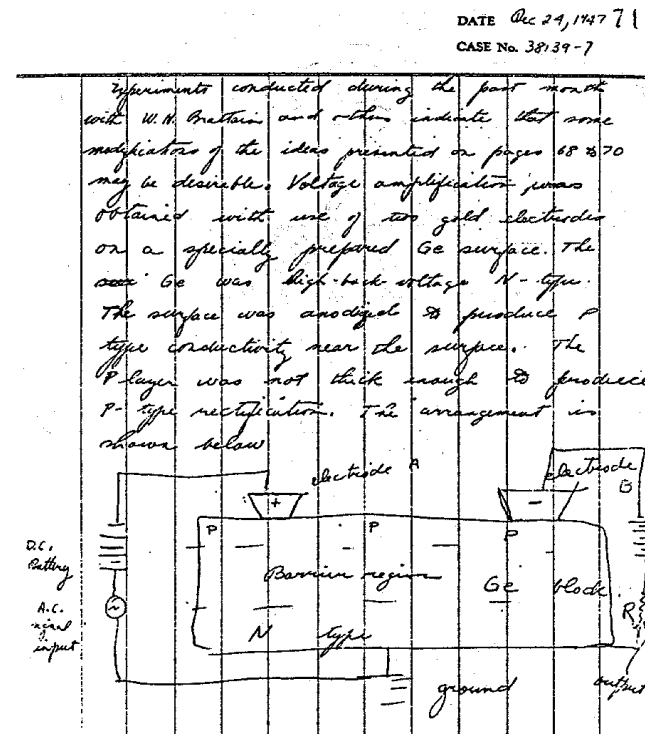 DATE Dec 24, 1947 71
CASE No. 38139-7
Experiments conducted during the past month
with W.H. Brattain and others indicate that some
modifications of the ideas presented on pages 68 to 70
may be desirable. Voltage amplification was
obtained with use of two gold electrodes
on a specially prepared Ge surface. The
Ge was high-back-voltage N-type.
The surface was anodized to produce P
type conductivity near the surface. The
P layer was not thick enough to produce
P-type rectification. The arrangement is
shown below
electrode A
electrode B
+
-
P P P
D.C.
Battery
Barrier region Ge block
A.C.
signal
input
N type
R
ground
output